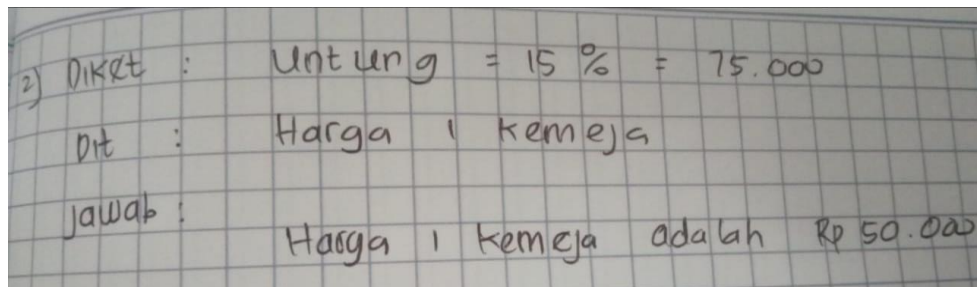 2) Diket : Untung = 15 % = 75.000
Dit : Harga 1 kemeja
Jawab :
Harga 1 kemeja adalah Rp 50.000